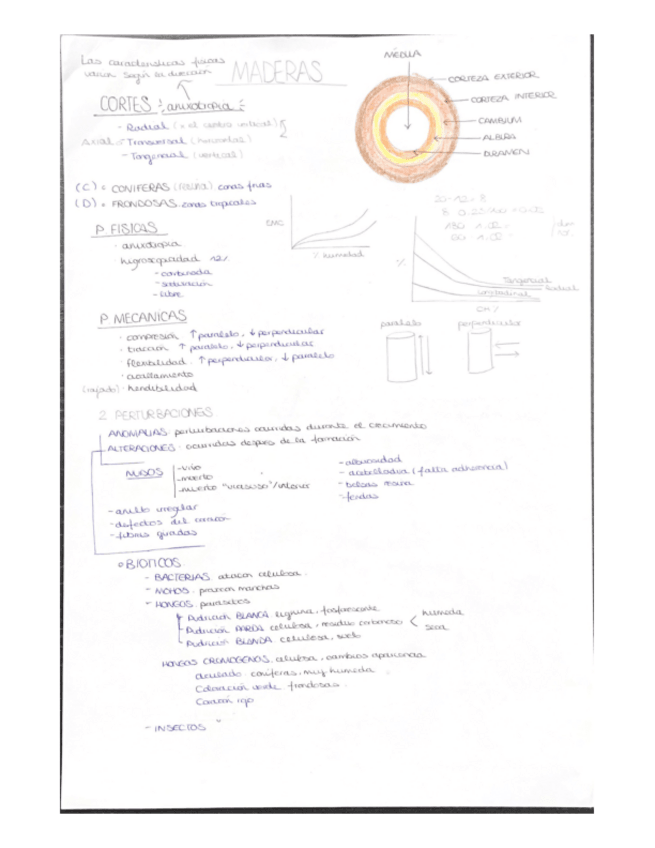 Las características físicas
varían según la dirección
MADERAS
CORTES : anisotropía :
- Radial (= al centro vertical)
Axial = Transversal (horizontal)
- Tangencial (vertical)
MÉDULA
CORTEZA EXTERIOR
CORTEZA INTERIOR
CAMBIUM
ALBURA
DURAMEN
(C) = CONÍFERAS (resina) zonas frías
(D) = FRONDOSAS zonas tropicales
P. FÍSICAS
· anisotropía
· higroscopicidad 12%
- combinada
- saturación
- libre
EMC
% humedad
20-12 = 8
%
Tangencial
Radial
Longitudinal
CH %
P. MECÁNICAS
· compresión ↑ paralelo, ↓ perpendicular
· tracción ↑ paralelo, ↓ perpendicular
· flexibilidad ↑ perpendicular, ↓ paralelo
· cizallamiento
(rajado) · hendibilidad
paralelo
perpendicular
2. PERTURBACIONES
ANOMALÍAS: perturbaciones ocurridas durante el crecimiento
ALTERACIONES: ocurridas después de la formación
NUDOS
- vivo
- muerto
- muerto "vicioso"/interior
- anillo irregular
- defectos del corazón
- fibras giradas
- albuosidad
- acebolladura (falta adherencia)
- bolsas resina
- fendas
BIÓTICOS
- BACTERIAS: atacan celulosa.
- MOHOS: provocan manchas
- HONGOS: parásitos
Pudrición BLANCA lignina, fosforescente
Pudrición PARDA celulosa, residuo carbonoso < humeda
seca
Pudrición BLANDA celulosa, suelo
HONGOS CROMÓGENOS: celulosa, cambios apariencia
azulado: coníferas, muy humeda
Coloración verde frondosas.
Corazón rojo
- INSECTOS